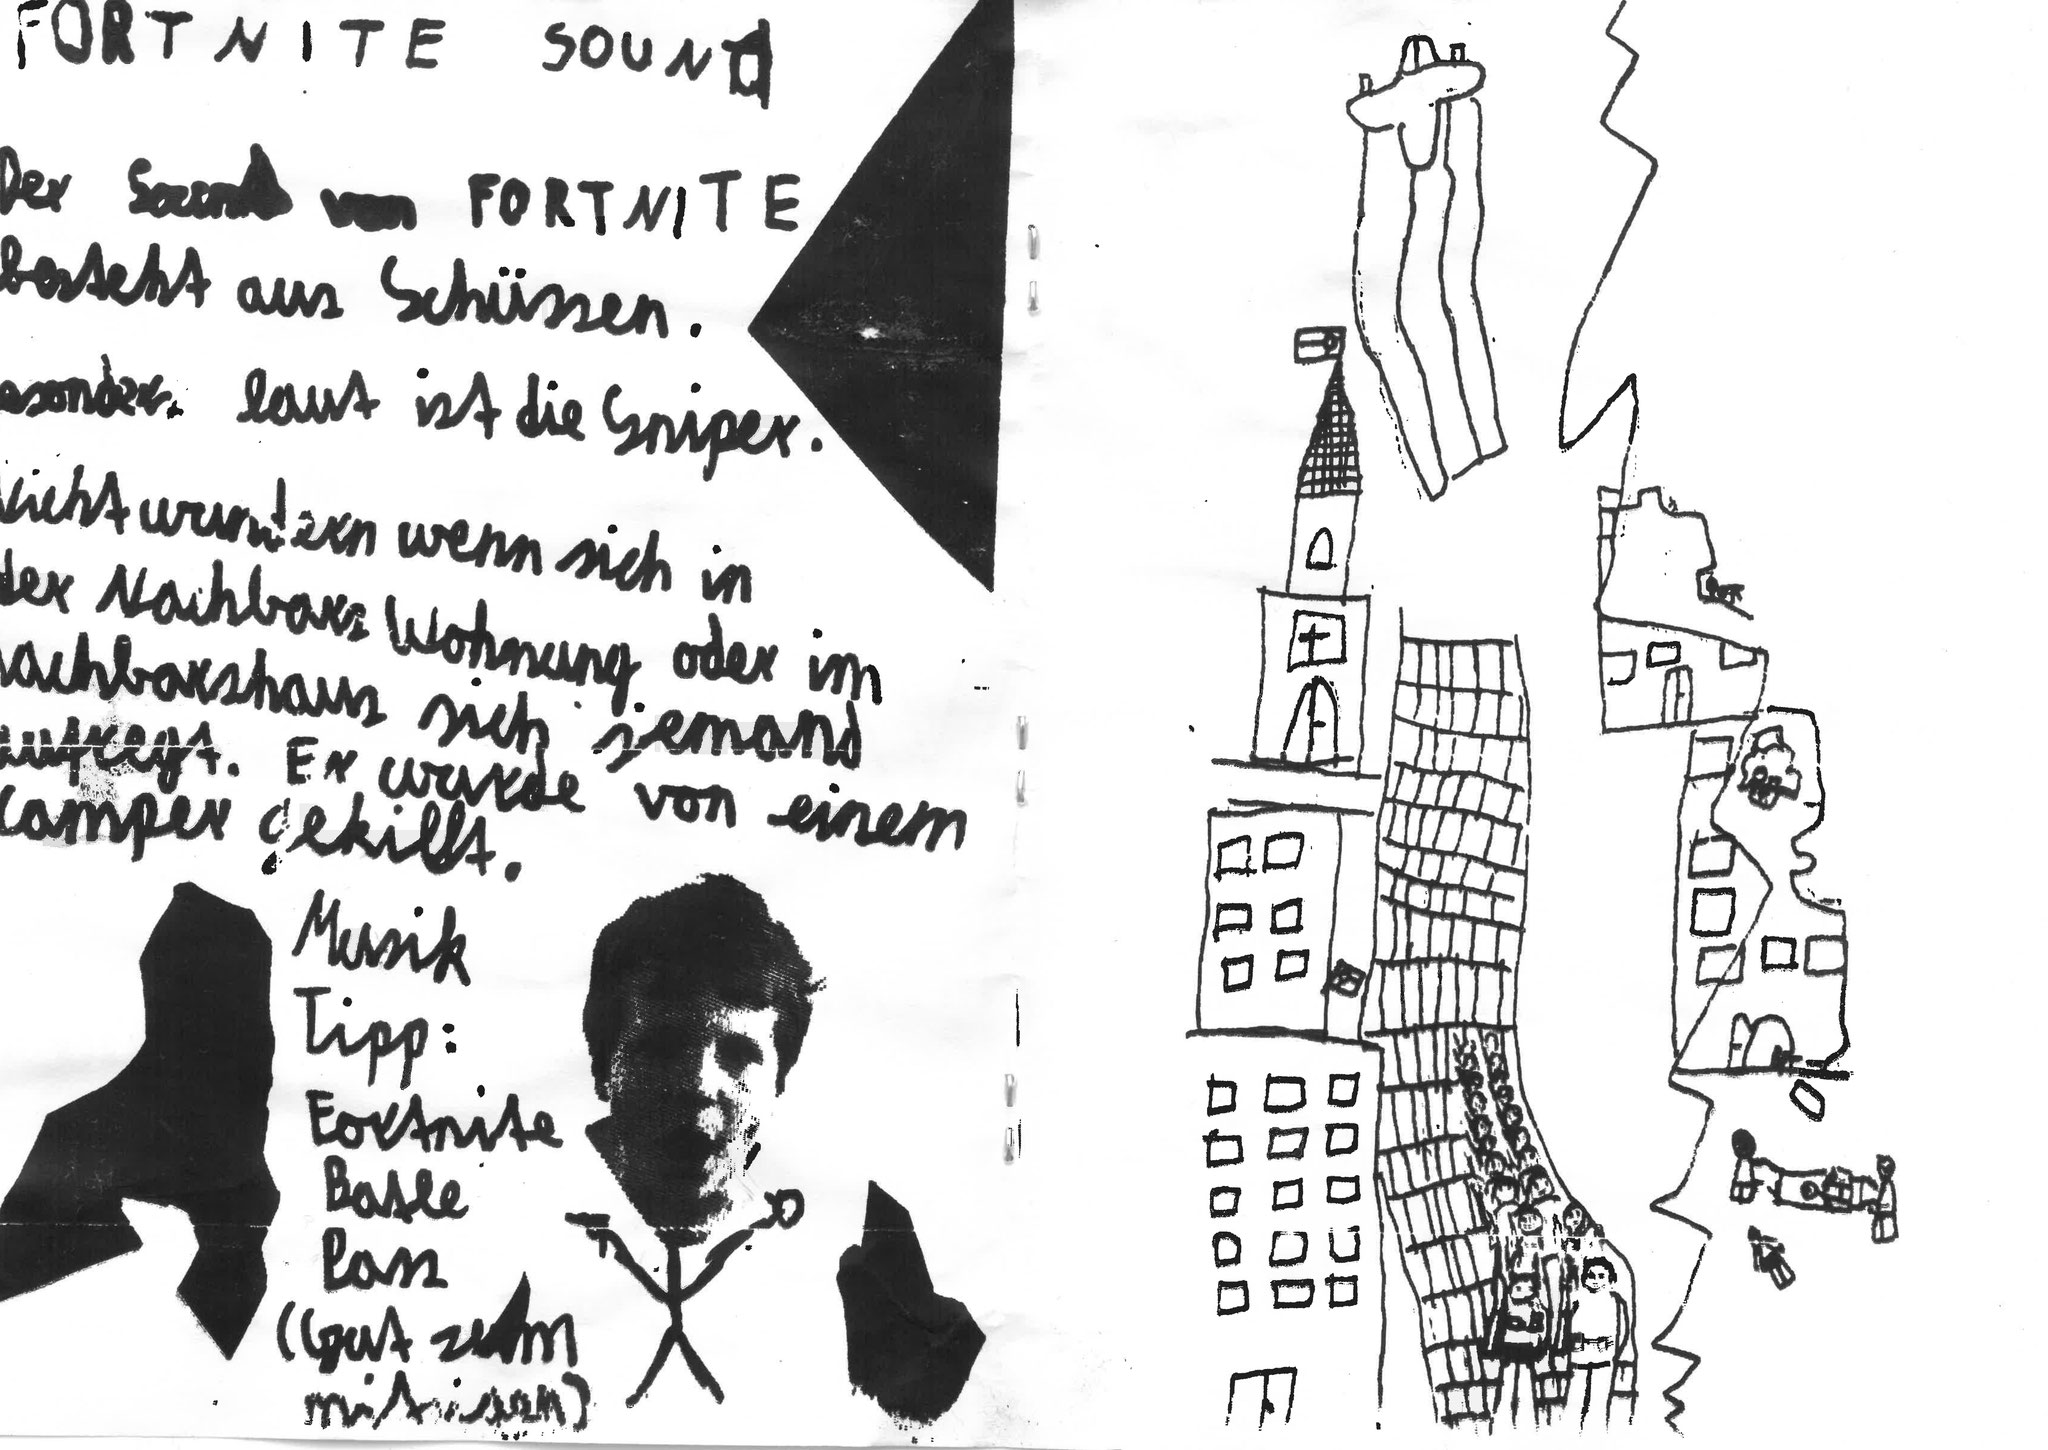 FORTNITE SOUND
Der Sound von FORTNITE
besteht aus Schüssen.
esonders laut ist die Sniper.
Nicht wundern wenn sich in
der Nachbars Wohnung oder im
Nachbarshaus sich jemand
aufregt. Er wurde von einem
Camper gekillt.
Musik
Tipp:
Fortnite
Batle
Pass
(Gut zum
mit